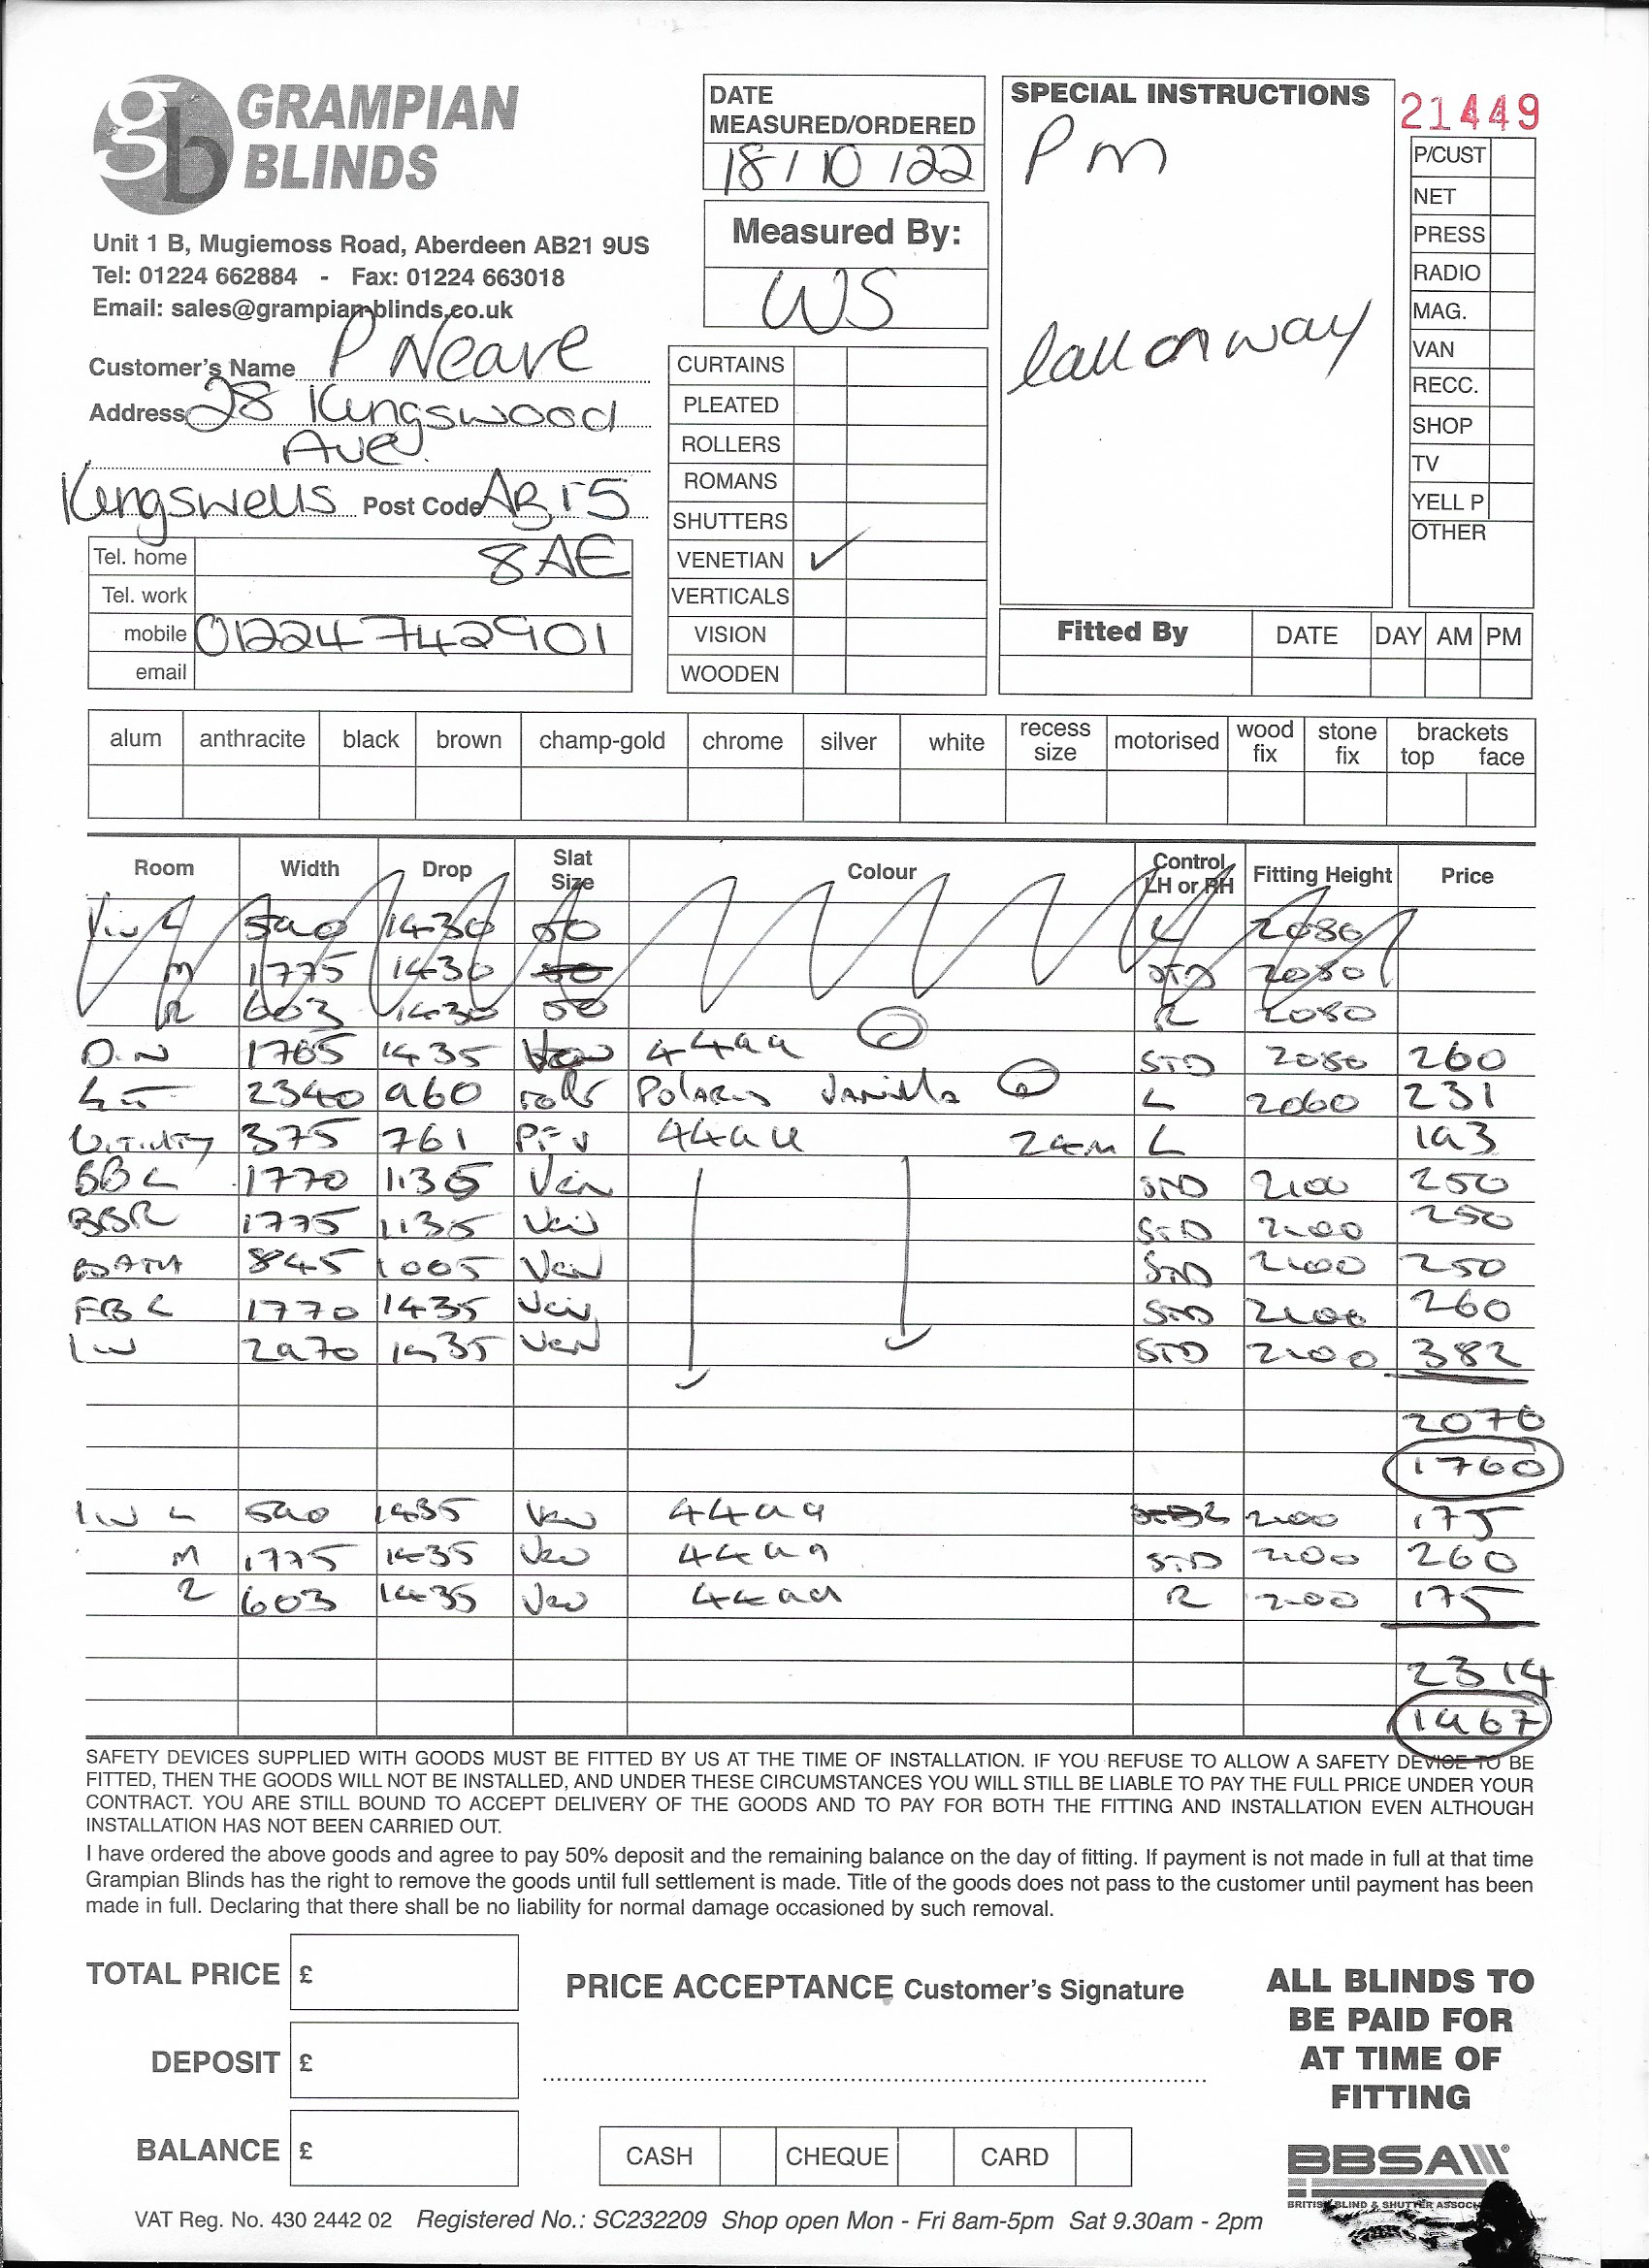 GRAMPIAN BLINDS
Unit 1 B, Mugiemoss Road, Aberdeen AB21 9US
Tel: 01224 662884 - Fax: 01224 663018
Email: sales@grampianblinds.co.uk
Customer's Name P Neave
Address 28 Kingswood
Ave.
Kingswells Post Code AB15
8AE
Tel. home
Tel. work
mobile 01224 742901
email
DATE
MEASURED/ORDERED
18/10/22
Measured By:
WS
CURTAINS
PLEATED
ROLLERS
ROMANS
SHUTTERS
VENETIAN ✓
VERTICALS
VISION
WOODEN
SPECIAL INSTRUCTIONS
Pm
Call on way
21449
P/CUST
NET
PRESS
RADIO
MAG.
VAN
RECC.
SHOP
TV
YELL P
OTHER
Fitted By DATE DAY AM PM
alum anthracite black brown champ-gold chrome silver white recess size motorised wood fix stone fix brackets top face
Room Width Drop Slat Size Colour Control LH or RH Fitting Height Price
L 590 1430 50 L 2080
M 1775 1430 50 STD 2080
R 603 1430 50 R 2080
D.N 1765 1435 Ven 4499 STD 2080 260
2340 960 Polaris Vanilla L 2060 231
Utility 375 761 PFV 4499 L 193
BBL 1770 1135 Ven STD 2100 250
BBR 1775 1135 Ven STD 2100 250
BATH 845 1005 Ven STD 2100 250
FBL 1770 1435 Ven STD 2100 260
2970 1435 Ven STD 2100 382
2076
1760
L 590 1435 Ven 4499 L 2100 175
M 1775 1435 Ven 4499 STD 2100 260
R 603 1435 Ven 4499 R 2100 175
2314
1967
SAFETY DEVICES SUPPLIED WITH GOODS MUST BE FITTED BY US AT THE TIME OF INSTALLATION. IF YOU REFUSE TO ALLOW A SAFETY DEVICE TO BE
FITTED, THEN THE GOODS WILL NOT BE INSTALLED, AND UNDER THESE CIRCUMSTANCES YOU WILL STILL BE LIABLE TO PAY THE FULL PRICE UNDER YOUR
CONTRACT. YOU ARE STILL BOUND TO ACCEPT DELIVERY OF THE GOODS AND TO PAY FOR BOTH THE FITTING AND INSTALLATION EVEN ALTHOUGH
INSTALLATION HAS NOT BEEN CARRIED OUT.
I have ordered the above goods and agree to pay 50% deposit and the remaining balance on the day of fitting. If payment is not made in full at that time
Grampian Blinds has the right to remove the goods until full settlement is made. Title of the goods does not pass to the customer until payment has been
made in full. Declaring that there shall be no liability for normal damage occasioned by such removal.
TOTAL PRICE £
DEPOSIT £
BALANCE £
PRICE ACCEPTANCE Customer's Signature
CASH CHEQUE CARD
ALL BLINDS TO
BE PAID FOR
AT TIME OF
FITTING
BBSA
BRITISH BLIND & SHUTTER ASSOC
VAT Reg. No. 430 2442 02 Registered No.: SC232209 Shop open Mon - Fri 8am-5pm Sat 9.30am - 2pm